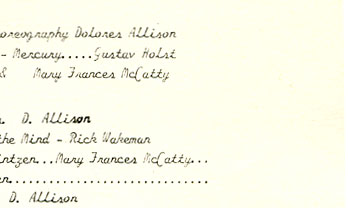 oreography Dolores Allison
- Mercury.....Gustav Holst
& Mary Frances McCatty
. D. Allison
the Mind - Rick Wakeman
intzen...Mary Frances McCatty...
en..............................
D. Allison